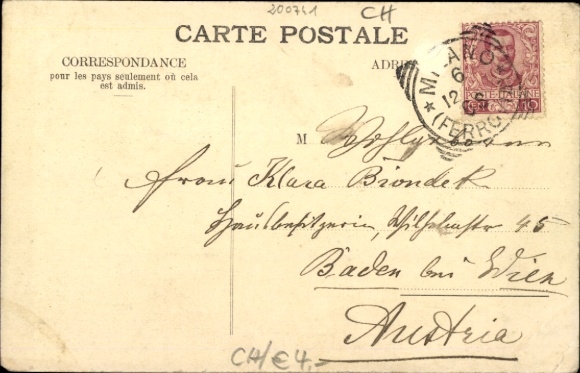 200741 CH
CARTE POSTALE
CORRESPONDANCE
pour les pays seulement où cela
est admis.
ADRE
MILANO
6
12 05
(FERROVIA
10
M
Wohlgeboren
Frau Klara Biondek
Hausbesitzerin, Wilhelmstr 45
Baden bei Wien
Austria
CH/€4,-